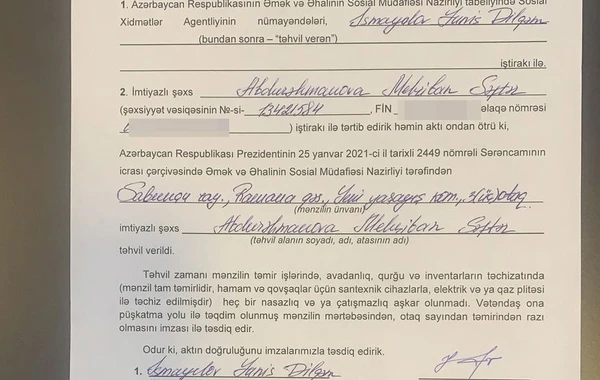 1. Azərbaycan Respublikasının Əmək və Əhalinin Sosial Müdafiəsi Nazirliyi tabeliyində Sosial
Xidmətlər Agentliyinin nümayəndələri, Ismayılov Yunis Dilqəm
(bundan sonra – “təhvil verən”)
iştirakı ilə.
2. İmtiyazlı şəxs Abdurəhmanova Mehriban Səftər
(şəxsiyyət vəsiqəsinin №-si- 13421584, FİN əlaqə nömrəsi
) iştirakı ilə tərtib edirik həmin aktı ondan ötrü ki,
Azərbaycan Respublikası Prezidentinin 25 yanvar 2021-ci il tarixli 2449 nömrəli Sərəncamının
icrası çərçivəsində Əmək və Əhalinin Sosial Müdafiəsi Nazirliyi tərəfindən
Sabunçu ray., Ramana qəs., Yeni yaşayış kom., 3(üç)otaq
(mənzilin ünvanı)
imtiyazlı şəxs Abdurəhmanova Mehriban Səftər
(təhvil alanın soyadı, adı, atasının adı)
təhvil verildi.
Təhvil zamanı mənzilin təmir işlərində, avadanlıq, qurğu və inventarların təchizatında
(mənzil tam təmirlidir, hamam və qovşaqlar üçün santexnik cihazlarla, elektrik və ya qaz plitəsi
ilə təchiz edilmişdir) heç bir nasazlıq və ya çatışmazlıq aşkar olunmadı. Vətəndaş ona
püşkatma yolu ilə təqdim olunmuş mənzilin mərtəbəsindən, otaq sayından təmirindən razı
olmasını imzası ilə təsdiq edir.
Odur ki, aktın doğruluğunu imzalarımızla təsdiq edirik.
1. Ismayılov Yunis Dilqəm